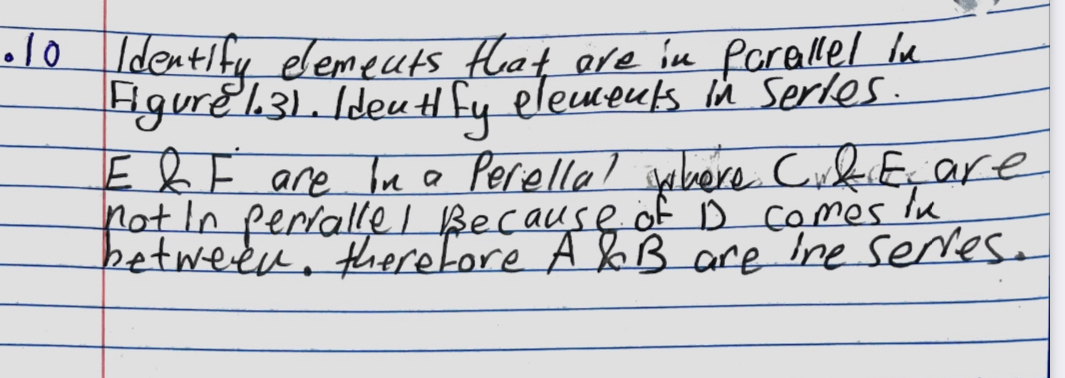 .10 Identify elements that are in Parallel in
Figure 1.31. Identify elements in Series.
E & F are In a Perellal where C & E are
not In perrallel Because of D comes in
between. therefore A & B are ine series.